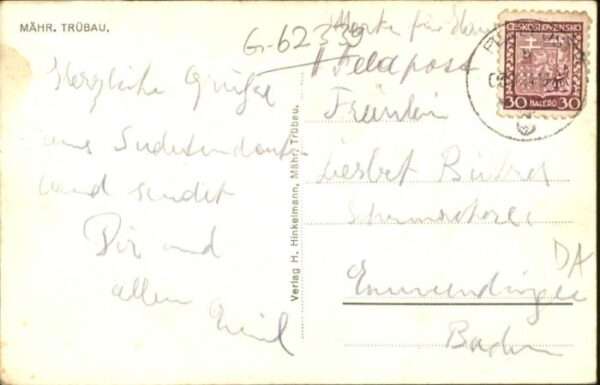 MÄHR. TRÜBAU.
G-62339
Herzliche Grüße
aus Sudetendeutsch
land sendet
Dir und
allen Emil
Verlag H. Hinkelmann, Mähr. Trübau.
Marke für
Feldpost
Fräulein
Liesbet
Emmendingen
Baden
DA
ČESKOSLOVENSKO
30 HALÉŘŮ 30